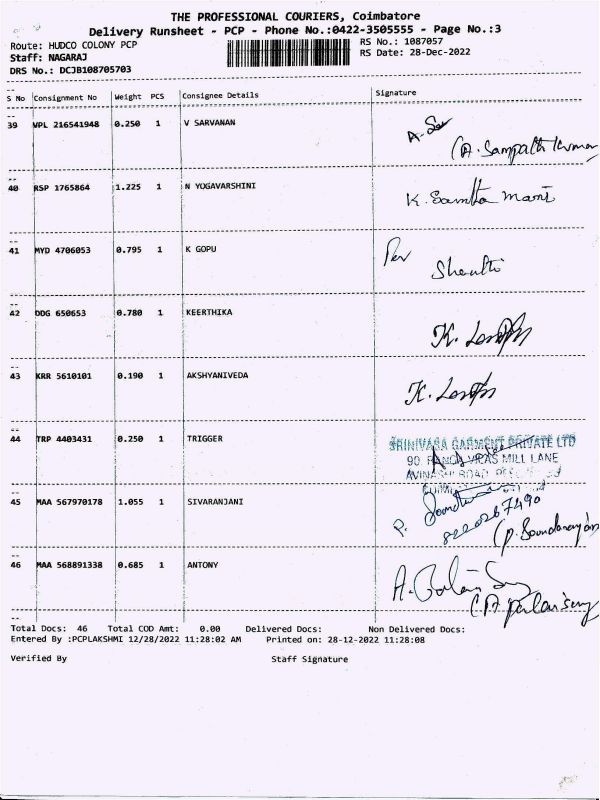 THE PROFESSIONAL COURIERS, Coimbatore
Delivery Runsheet - PCP - Phone No.:0422-3505555 - Page No.:3
Route: HUDCO COLONY PCP
RS No.: 1087057
Staff: NAGARAJ
RS Date: 28-Dec-2022
DRS No.: DCJB108705703
S No Consignment No Weight PCS Consignee Details Signature
39 VPL 216541948 0.250 1 V SARVANAN
(A. Sampath Kumar
40 RSP 1765864 1.225 1 N YOGAVARSHINI
K. Mani
41 MYD 4706053 0.795 1 K GOPU
Shanthi
42 DDG 650653 0.780 1 KEERTHIKA
K.
43 KRR 5610101 0.190 1 AKSHYANIVEDA
K.
44 TRP 4403431 0.250 1 TRIGGER
SRINIVASA GARMENT PRIVATE LTD
90 RANGA VILAS MILL LANE
AVINASHI ROAD
45 MAA 567970178 1.055 1 SIVARANJANI
P.
46 MAA 568891338 0.685 1 ANTONY
A.
Total Docs: 46 Total COD Amt: 0.00 Delivered Docs: Non Delivered Docs:
Entered By :PCPLAKSHMI 12/28/2022 11:28:02 AM Printed on: 28-12-2022 11:28:08
Verified By Staff Signature